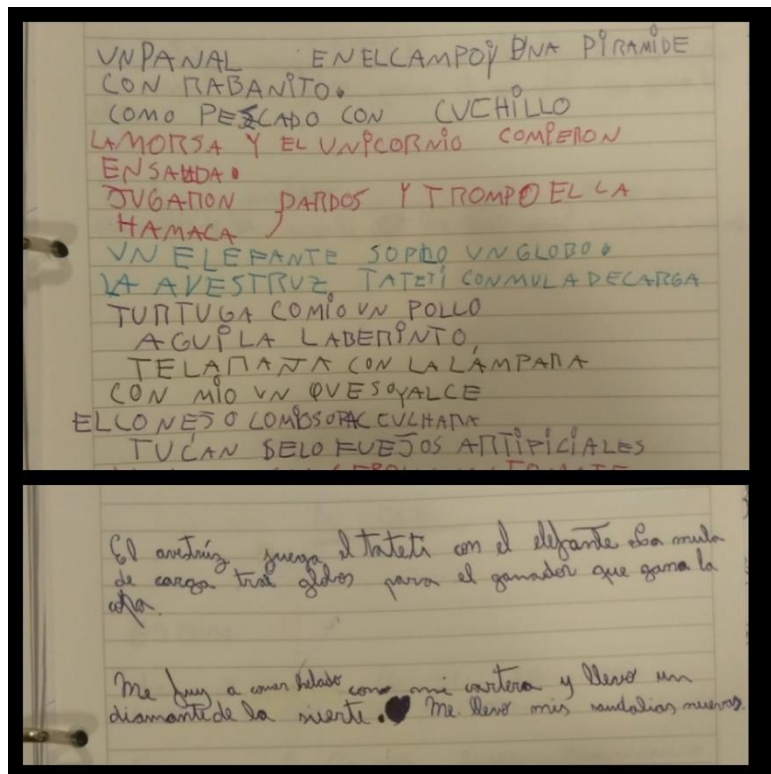 UN PANAL EN EL CAMPO Y UNA PIRAMIDE
CON RABANITO.
COMO PESCADO CON CUCHILLO
LA MORSA Y EL UNICORNIO COMIERON
ENSALADA.
JUGARON DARDOS Y TROMPO EL LA
HAMACA
UN ELEFANTE SOPLO UN GLOBO.
LA AVESTRUZ TATETI CON MULA DE CARGA
TURTUGA COMIO UN POLLO
AGUILA LABERINTO,
TELARAÑA CON LA LÁMPARA
CON MIO UN QUESO Y ALCE
EL CONEJO COMIO SOPA CUCHARA
TUCAN FUEJOS ARTIFICIALES
TOMATE
El avestrúz juega el tateti con el elefante La mula
de carga trae globos para el ganador que gana la
copa.
Me fuy a comer helado con mi cartera y llevo un
diamante de la suerte. Me llevo mis sandalias nuevas.